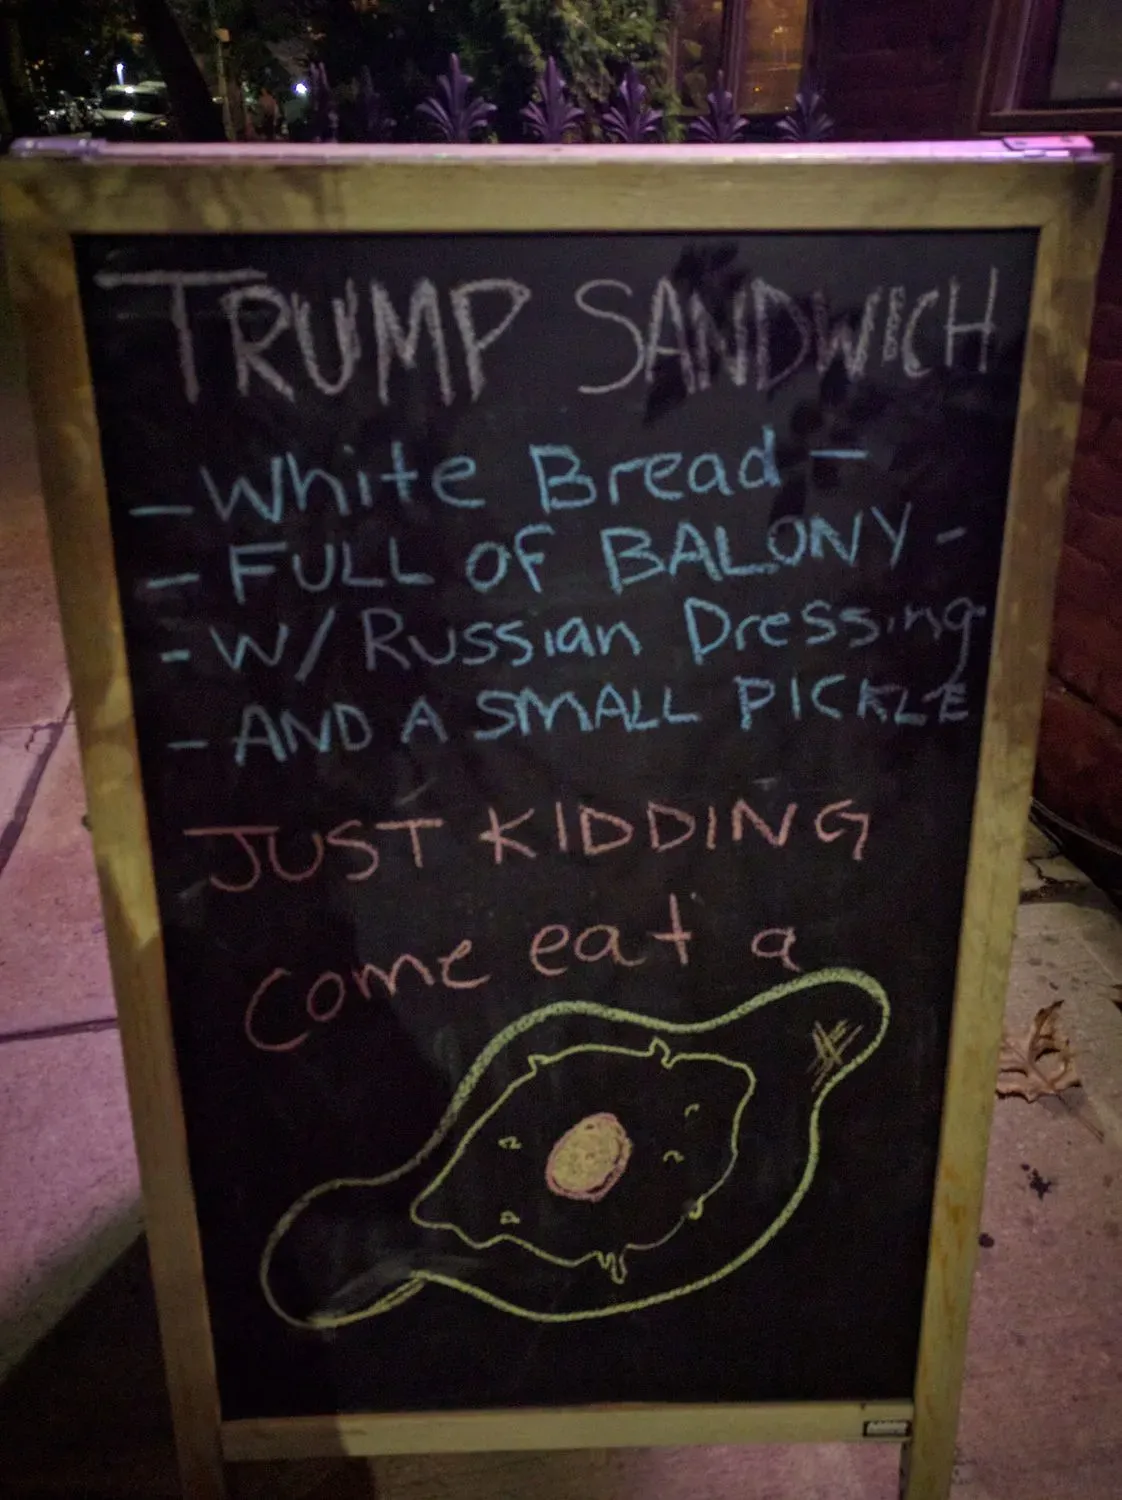 TRUMP SANDWICH
- White Bread -
- FULL OF BALONY -
- W/ Russian Dressing
- AND A SMALL PICKLE
JUST KIDDING
come eat a